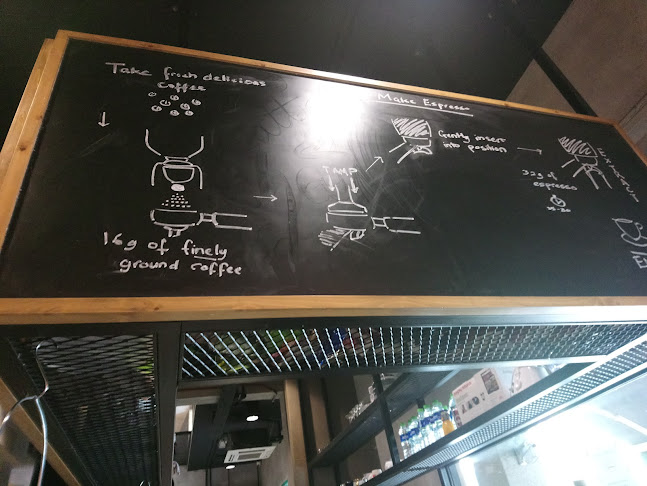 Take fresh delicious
coffee
16g of finely
ground coffee
Make Espresso
TAMP
Gently insert
into position
EXTRACT
32g of
espresso
25-30